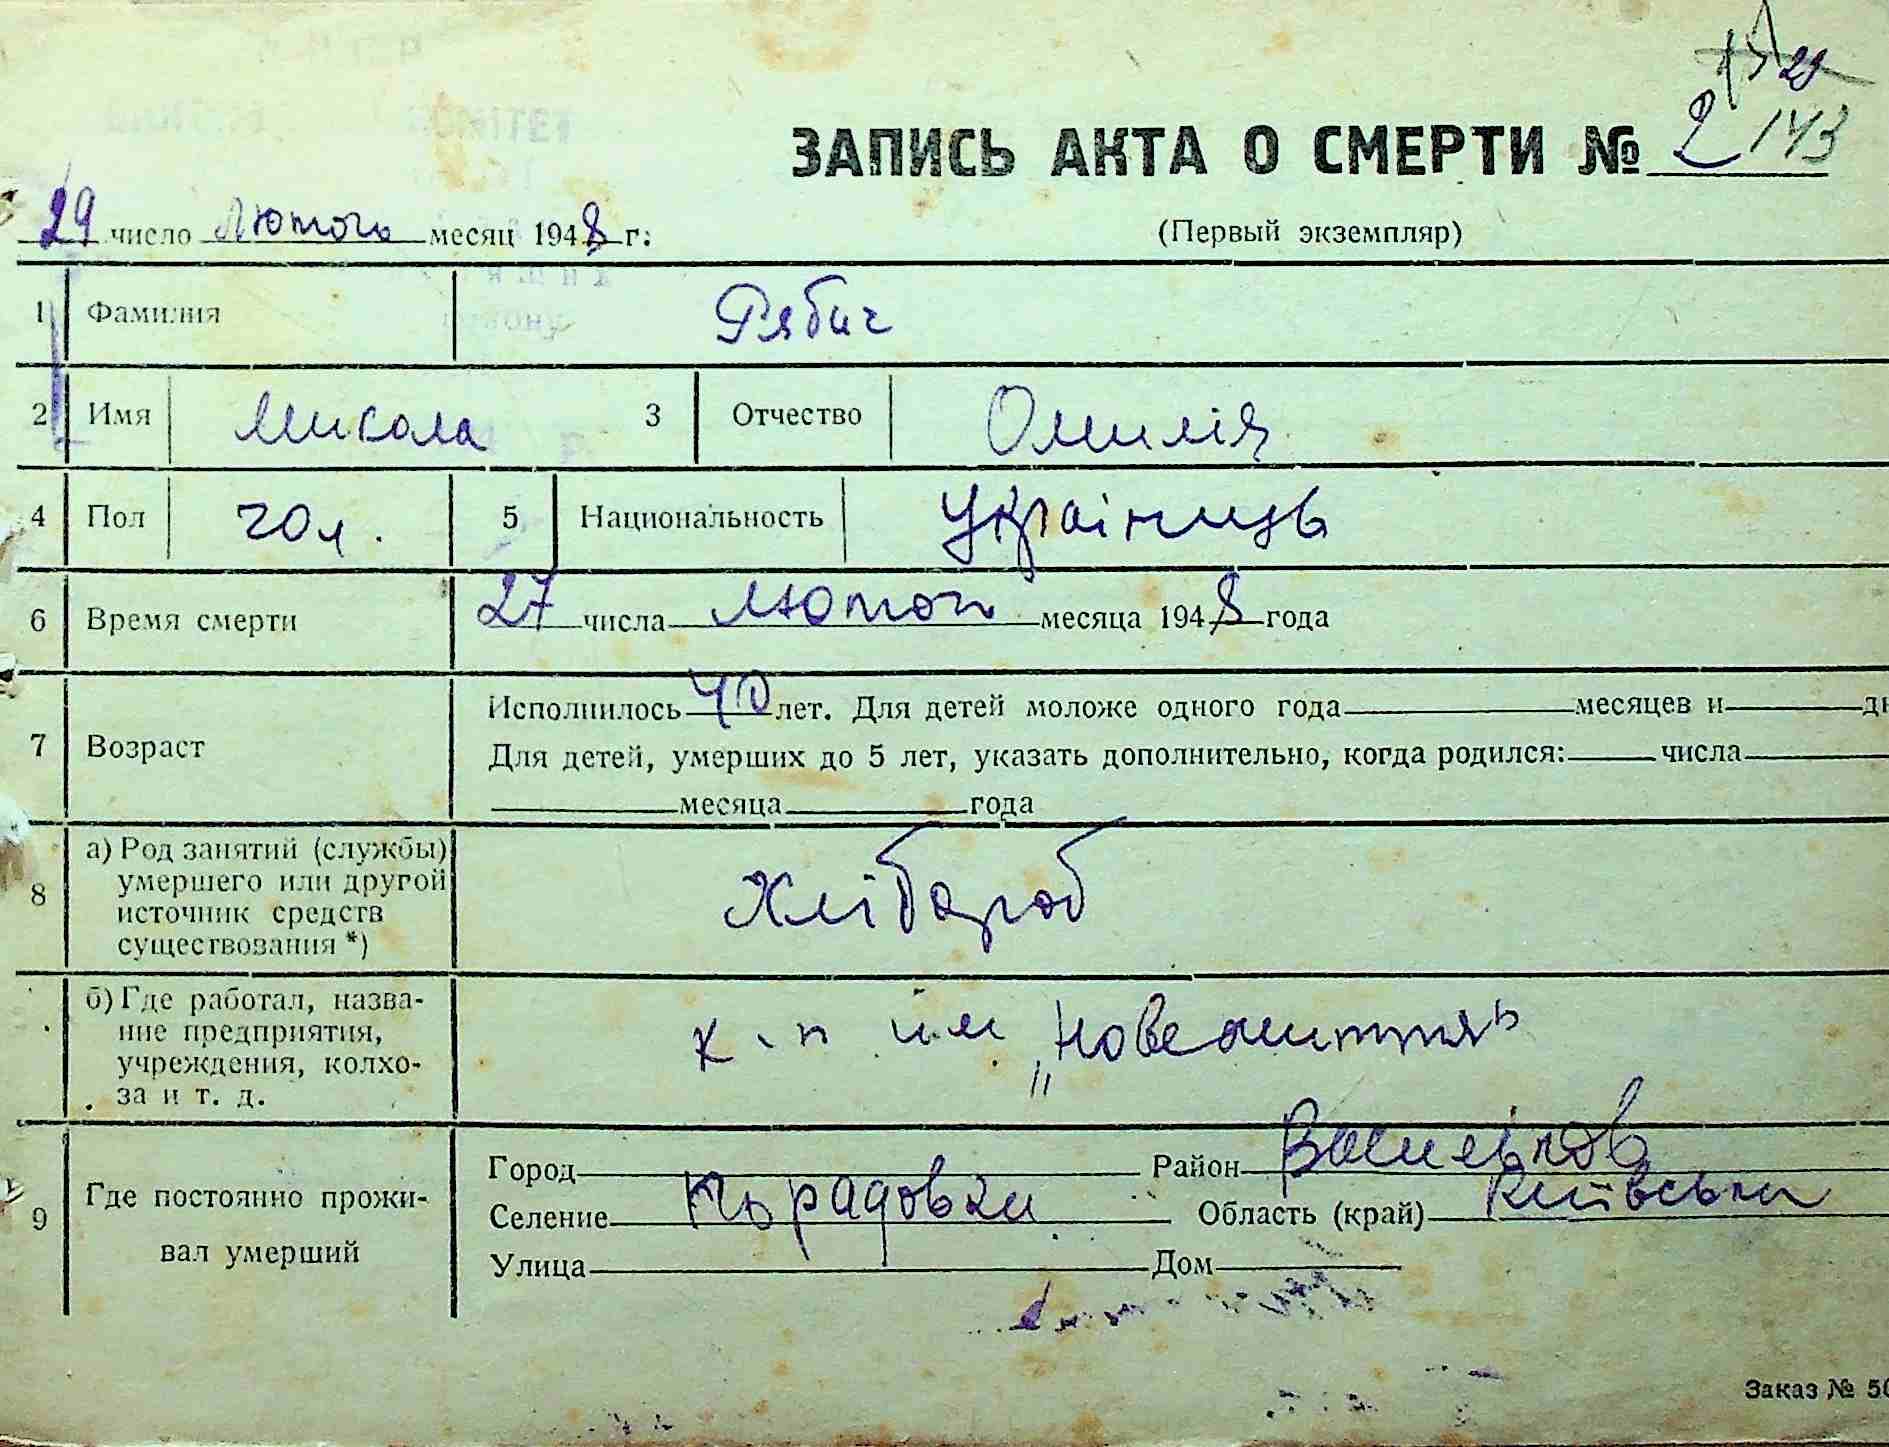 ЗАПИСЬ АКТА О СМЕРТИ № 2 143
29 число Лютого месяц 1948 г:
(Первый экземпляр)
1 Фамилия Рябич
2 Имя Микола 3 Отчество Омилія
4 Пол чол. 5 Национальность Українць
6 Время смерти 27 числа лютого месяца 1948 года
7 Возраст Исполнилось 40 лет. Для детей моложе одного года месяцев и дн
Для детей, умерших до 5 лет, указать дополнительно, когда родился: числа
месяца года
8 а) Род занятий (службы)
умершего или другой
источник средств
существования *)
Хлібороб
б) Где работал, назва-
ние предприятия,
учреждения, колхо-
за и т. д.
к-п им „Нове життя"
9 Где постоянно прожи-
вал умерший
Город Район Васильков
Селение Порадовки Область (край) Київська
Улица Дом
Заказ № 50